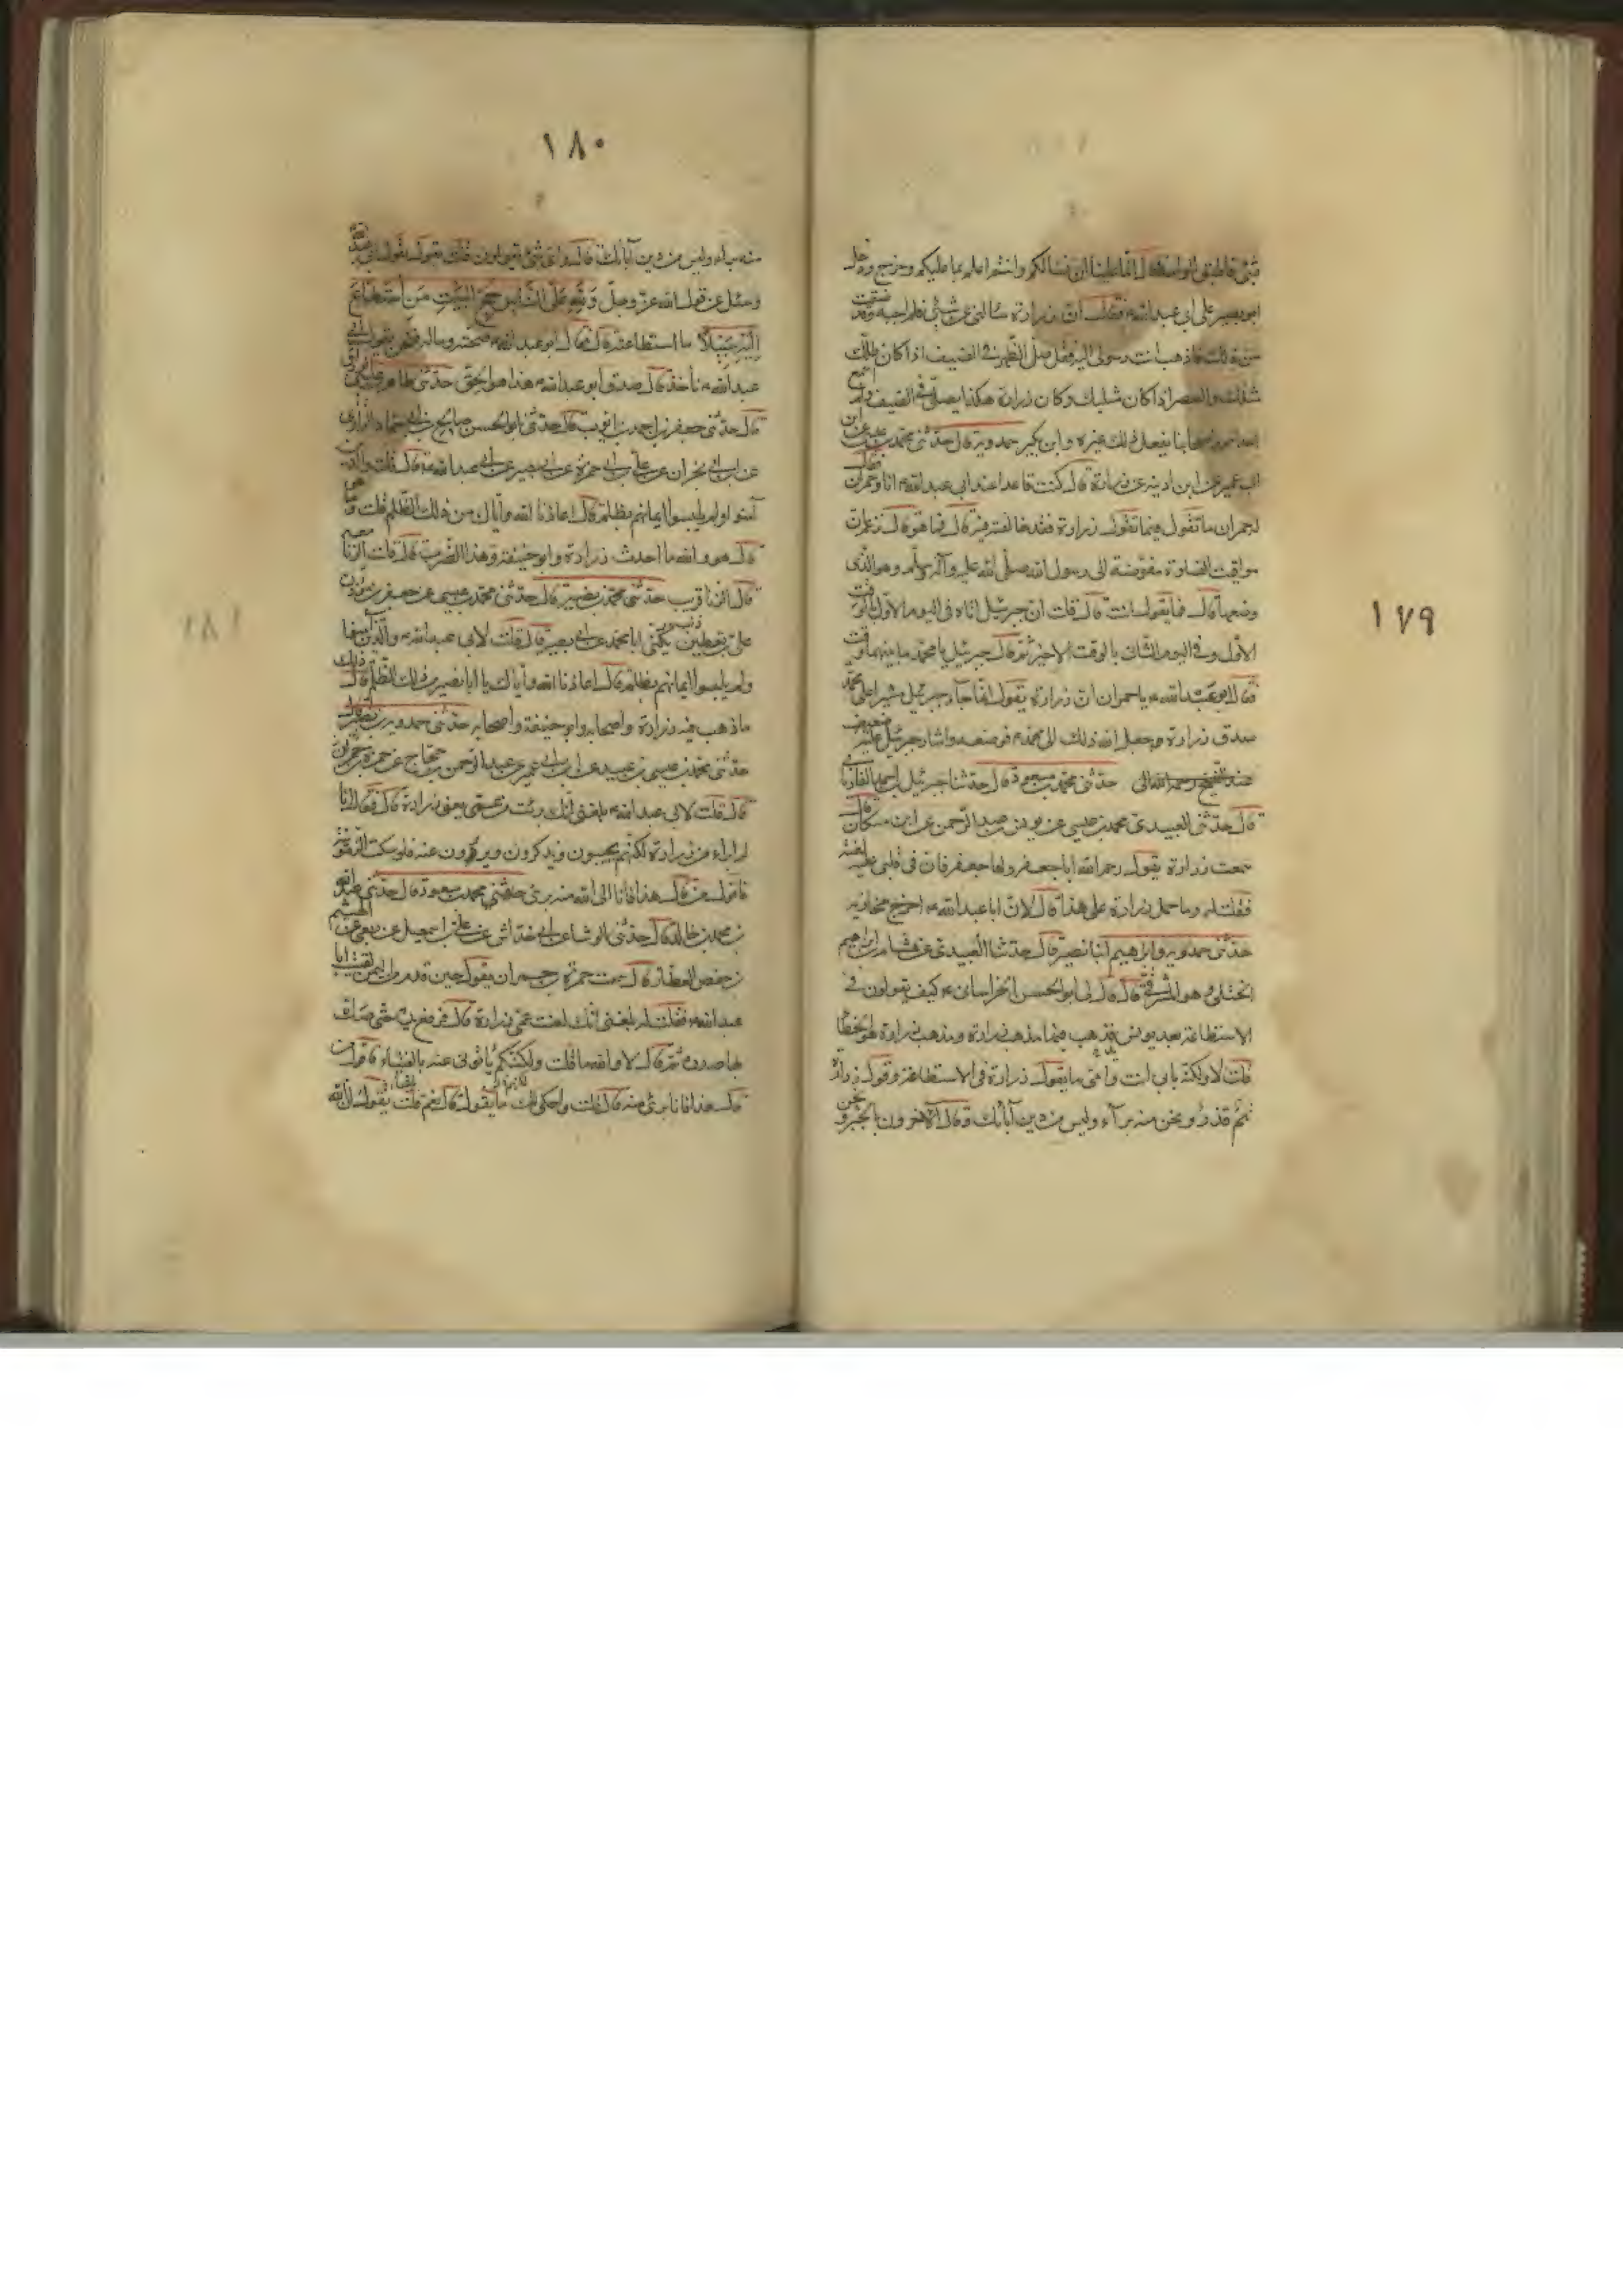 ١٧٩
شئ فاطبق الواحه قال انما علينا ان نسالكم وانتم اعلم بما عليكم وخرج ودخل
ابو بصير على ابي عبد الله ع فقال ان زرارة سالني عن شئ فلم اجبه وقد ضقت
من ذلك فاذهب انت رسولى اليه فقل صل الظهر في الصيف اذا كان ظلك
مثلك والعصر اذا كان مثليك وكان زرارة هكذا يصلى في الصيف ولم اسمع
احدا من اصحابنا يفعل ذلك غيره وابن بكير حمدويه قال حدثنى محمد بن عيسى عن ابن
ابى عمير عن ابن اذينه عن زرارة قال كنت قاعدا عند ابى عبد الله ع انا وحمران فقال
له حمران ما تقول فيما تقول زرارة فقد خالفته فيه قال فما هو قال زعم ان
مواقيت الصلوة مفوضة الى رسول الله صلى الله عليه وآله وسلم وهو الذى
وضعها قال فما تقول انت قال قلت ان جبرئيل اتاه في اليوم الاول بالوقت
الاول وفي اليوم الثانى بالوقت الاخير ثم قال جبرئيل يا محمد ما بينهما وقت
فقال ابو عبد الله ع يا حمران ان زرارة يقول انما جاء جبرئيل مشيرا على محمد
صدق زرارة وجعل الله ذلك الى محمد ع فوضعه واشار جبرئيل عليه
حدثنى محمد بن مسعود قال حدثنا جبرئيل بن احمد الفاريابى
قال حدثنى العبيدى محمد بن عيسى عن يونس بن عبد الرحمن عن ابن مسكان قال
سمعت زرارة يقول رحم الله ابا جعفر واما جعفر فان في قلبى عليه لفتة
فقلت له وما حمل زرارة على هذا قال لان ابا عبد الله ع اخرج مخازيه
حدثنى حمدويه وابراهيم ابنا نصير قال حدثنا العبيدى عن هشام بن ابراهيم
الختلى وهو المشرقى قال قال لى ابو الحسن الخراسانى ع كيف تقولون في
الاستطاعة بعد يونس فذهب فيها مذهب زرارة ومذهب زرارة هو الخطأ
قلت لا ولكنه بابى انت وامى ما يقول زرارة في الاستطاعة وقول زرارة
فيمن قدر ونحن منه برآء وليس من دين آبائك وقال الآخرون بالجبر ونحن
١٨٠
منه برآء وليس من دين آبائك قال فباى شئ تقولون قلت نقول بقول ابى عبد الله
وسئل عن قول الله عز وجل وَلِلَّهِ عَلَى النَّاسِ حِجُّ الْبَيْتِ مَنِ اسْتَطَاعَ
اِلَيْهِ سَبِيلًا ما استطاعته قال فقال ابو عبد الله ع صحته وماله فنحن بقول ابى
عبد الله ع نأخذ قال صدق ابو عبد الله ع هذا هو الحق حدثنى طاهر بن عيسى الوراق
قال حدثنى جعفر بن احمد بن ايوب قال حدثنى ابو الحسن صالح بن ابى حماد الرازى
عن ابن ابى نجران عن على بن ابى حمزة عن ابى بصير عن ابى عبد الله ع قال قلت والذين
آمنوا ولم يلبسوا ايمانهم بظلم قال اعاذنا الله واياك من ذلك الظلم قلت ما هو
قال هو والله ما احدث زرارة وابو حنيفة وهذا الضرب قال قلت الزنا معه
قال الزنا ذنب حدثنى محمد بن نصير قال حدثنى محمد بن عيسى عن حفص مؤذن
على بن يقطين يكنى ابا محمد عن ابى بصير قال قلت لابى عبد الله ع والذين آمنوا
ولم يلبسوا ايمانهم بظلم قال اعاذنا الله واياك يا ابا بصير من ذلك الظلم قال ذلك
ما ذهب فيه زرارة واصحابه وابو حنيفة واصحابه حدثنى حمدويه بن نصير قال
حدثنى محمد بن عيسى بن عبيد عن ابن ابى عمير عن عبد الرحمن بن حجاج عن حمزة بن حمران
قال قلت لابى عبد الله ع بلغنى انك برئت من عمى يعنى زرارة قال فقال انا
لم ابراء من زرارة لكنهم يجيئون ويذكرون ويروون عنه فلو سكت الزمونيه
فاقول من قال هذا فانا الى الله منه برئ حدثنى محمد بن مسعود قال حدثنى عبد الله
بن محمد بن خالد قال حدثنى الوشا عن ابى خداش عن على بن اسمعيل عن ربعى عن الهيثم
بن حفص العطار قال سمعت حمزة بن حمران يقول حين قدم من اليمن لقيت ابا
عبد الله ع فقلت له بلغنى انك لعنت عمى زرارة قال فرفع يده حتى صك
بها صدره ثم قال لا والله ما قلت ولكنكم تأتونى عنه بالفتياء فاقول من
قال هذا فانا برئ منه قال قلت واحكى لك ما يقول قال نعم قلت يقول ان الله
١٨١